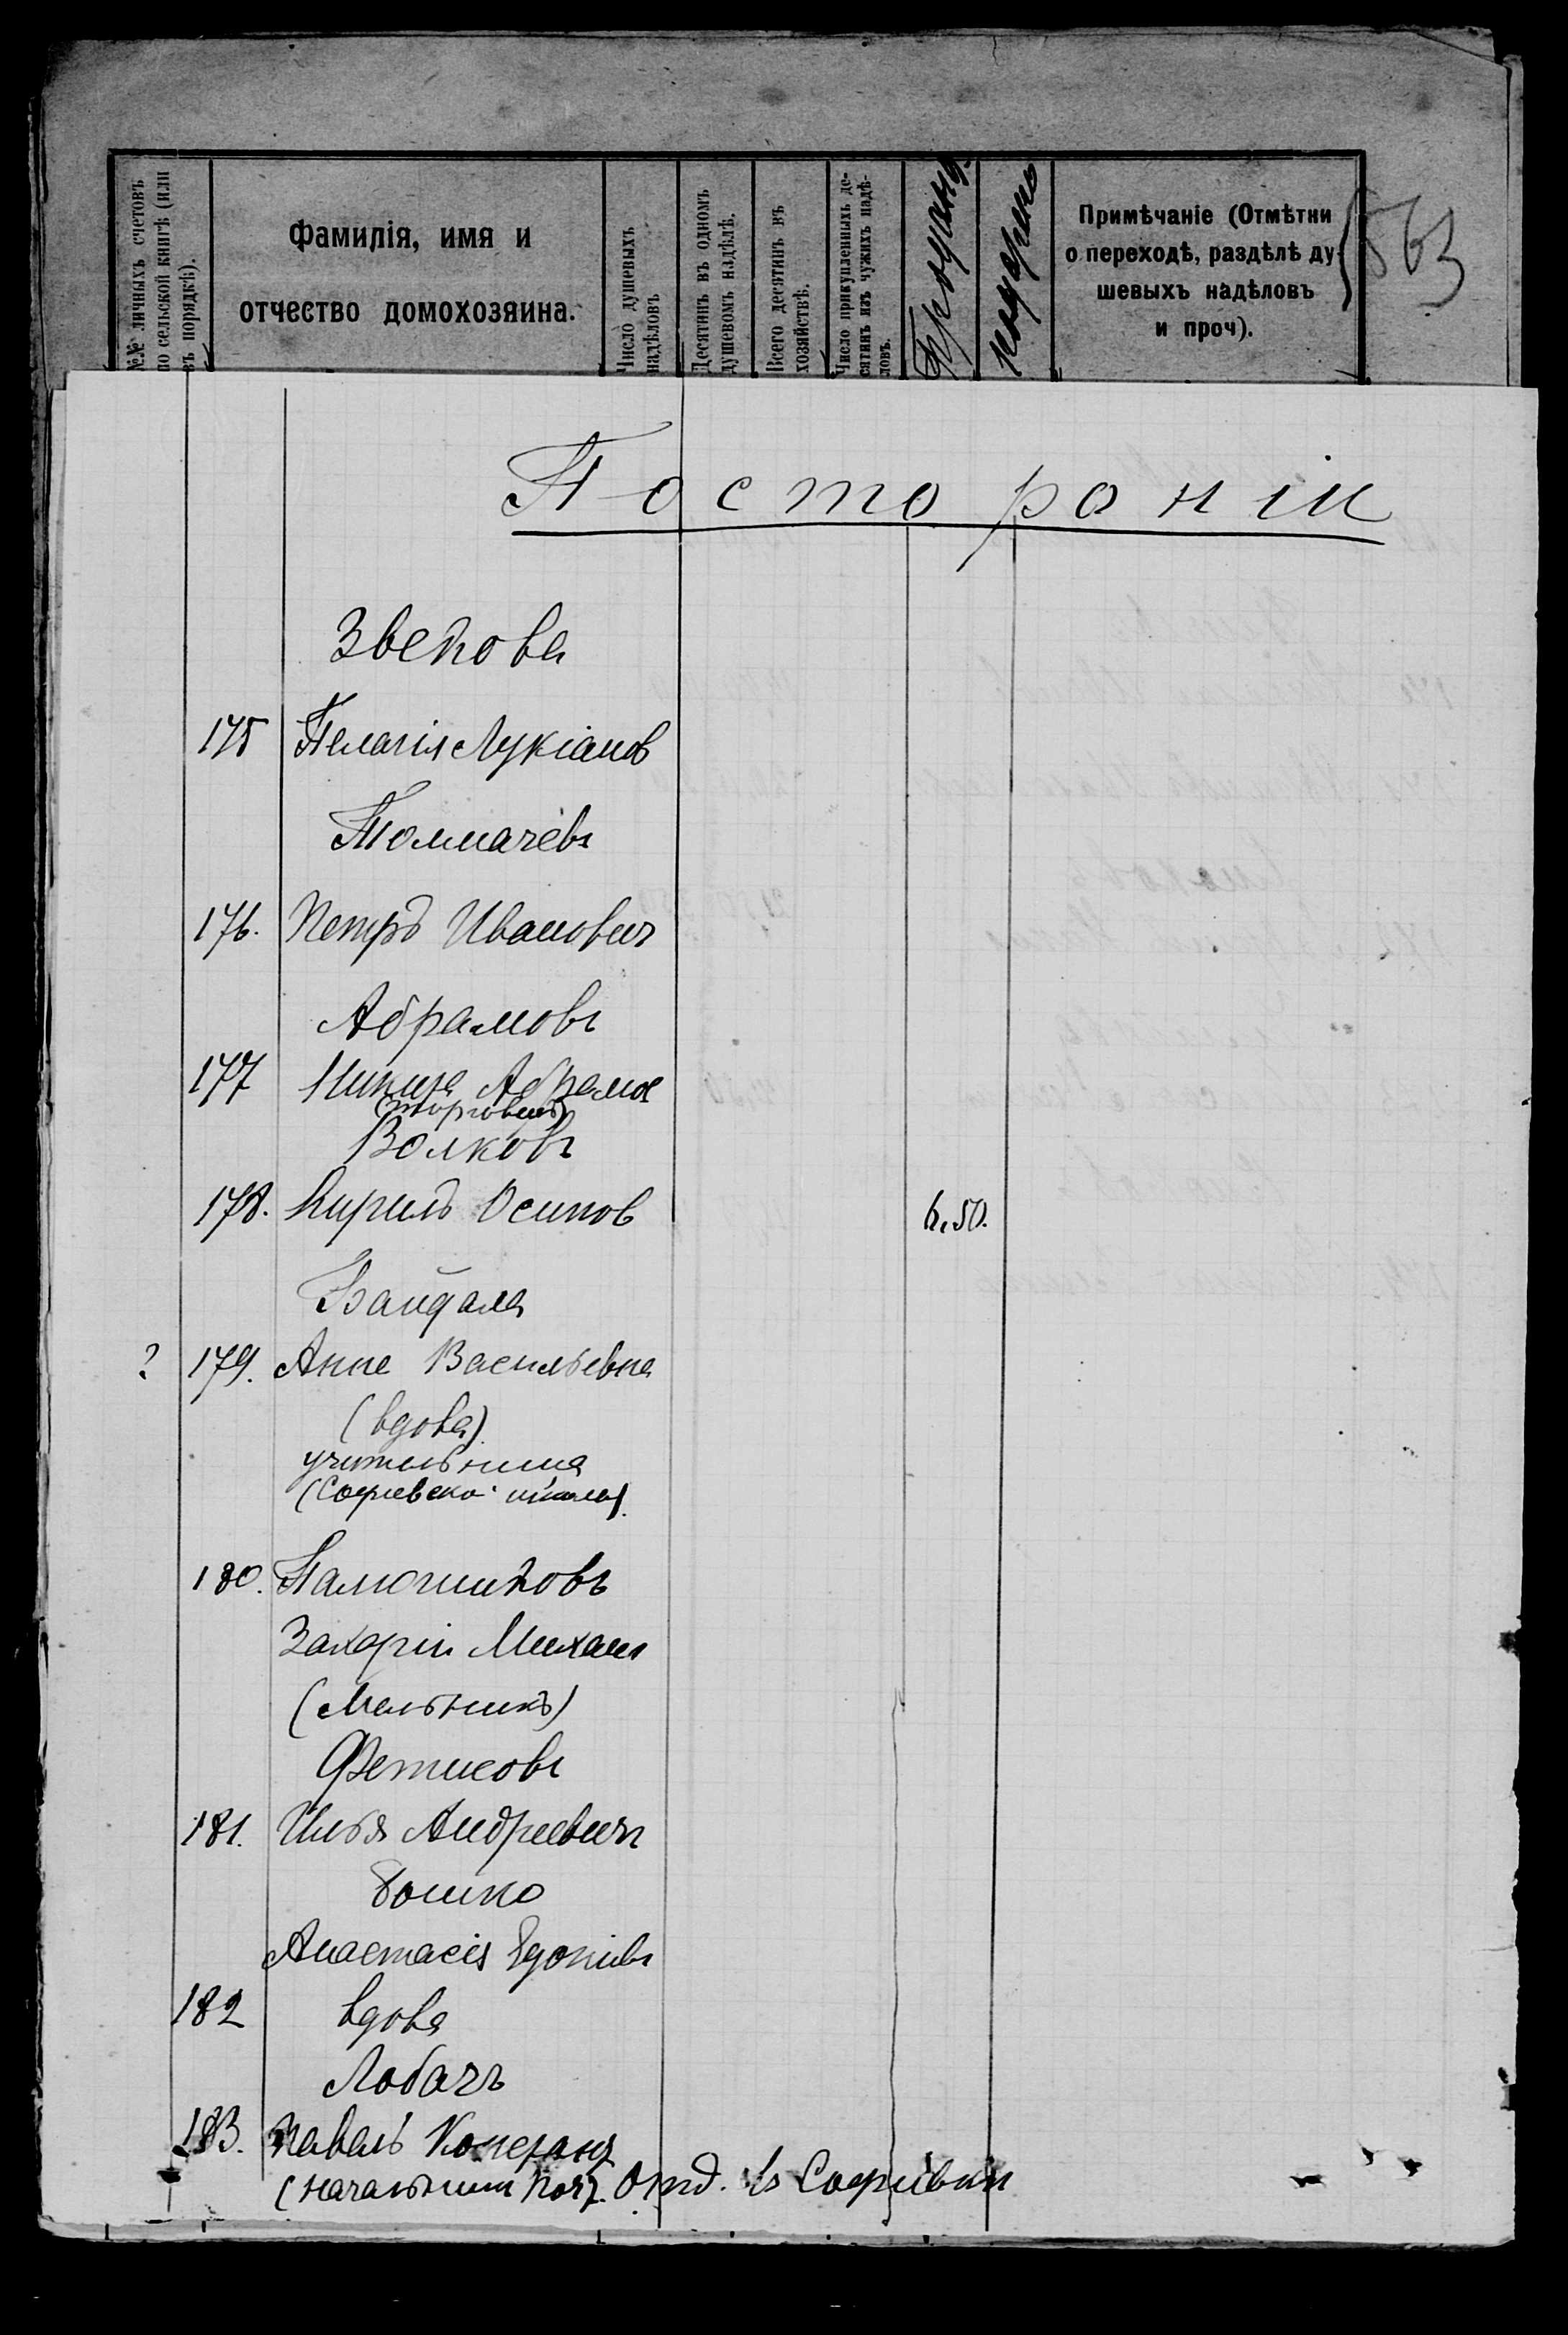 №№ личныхъ счетовъ
по сельской книгѣ (или
въ порядкѣ).
Фамилія, имя и
отчество домохозяина.
Число душевыхъ
надѣловъ
Десятинъ въ одномъ
душевомъ надѣлѣ.
Всего десятинъ въ
хозяйствѣ.
Число прикупленныхъ де-
сятинъ изъ чужихъ надѣ-
ловъ.
Примѣчаніе (Отмѣтки
о переходѣ, раздѣлѣ ду-
шевыхъ надѣловъ
и проч).
563
Посторонніи
Звекова
175 Пелагія Лукіанов
Толмачевъ
176. Петръ Ивановичъ
Абрамовъ
177 Никита Абрамов
(торговецъ)
Волковъ
178. Кирилъ Осипов 6,50.
Байдала
? 179. Анна Васильевна
(вдова)
учительница
(Софіевской школы)
180. Палютиковъ
Захарій Михаил
(Мельникъ)
Фетисовъ
181. Илья Андреевичъ
Бошко
Анастасія
182 вдова
Лобачъ
183. Павелъ
(начальник почт. Отд. въ Софіевки